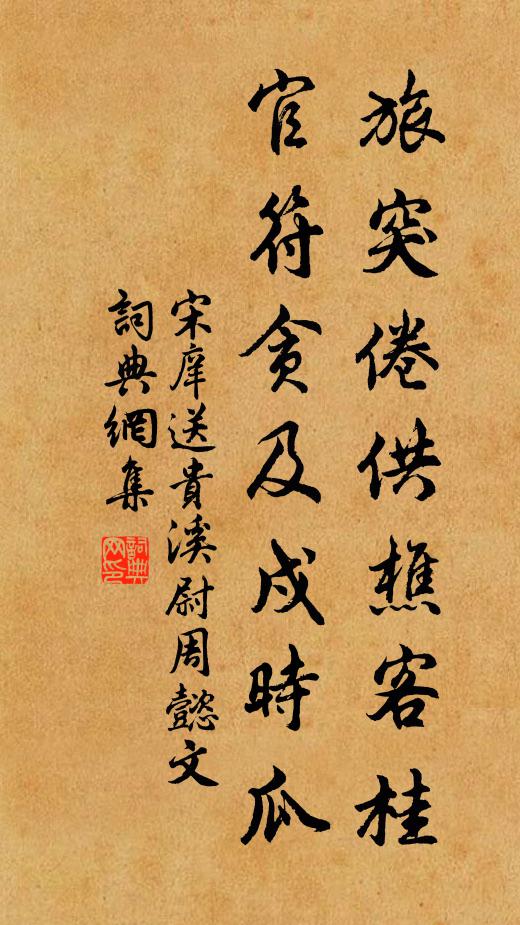 旅突倦供樵客桂
官符貪及戍時瓜
宋庠送貴溪尉周懿文
詞典網集
詞典网印